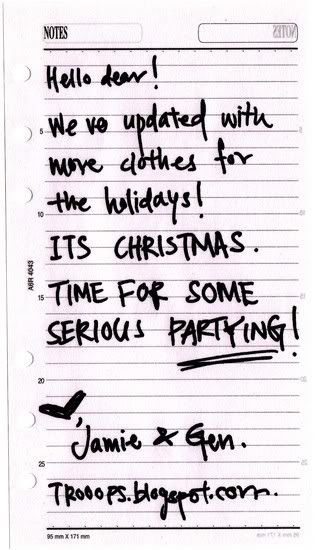 NOTES
Hello dear!
We've updated with
more clothes for
the holidays!
ITS CHRISTMAS.
TIME FOR SOME
SERIOUS PARTYING!
Jamie & Gen.
TROOOPS.blogspot.com.
5
10
15
20
25
A6R 4043
95 mm X 171 mm